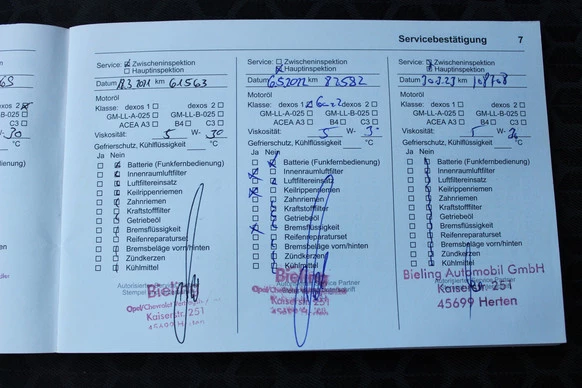 Servicebestätigung 7
Service: Zwischeninspektion
Hauptinspektion
Datum km 61563
Motoröl
Klasse: dexos 1 dexos 2
GM-LL-A-025 GM-LL-B-025
ACEA A3 B4 C3
Viskosität: 5 W- 30
Gefrierschutz, Kühlflüssigkeit °C
Ja Nein
Batterie (Funkfernbedienung)
Innenraumluftfilter
Luftfiltereinsatz
Keilrippenriemen
Zahnriemen
Kraftstofffilter
Getriebeöl
Bremsflüssigkeit
Reifenreparaturset
Bremsbeläge vorn/hinten
Zündkerzen
Kühlmittel
Bieling
Kaiserstr. 251
45699 Herten
Service: Zwischeninspektion
Hauptinspektion
Datum km 82582
Motoröl
Klasse: dexos 1 dexos 2
GM-LL-A-025 GM-LL-B-025
ACEA A3 B4 C3
Viskosität: 5 W-
Gefrierschutz, Kühlflüssigkeit °C
Ja Nein
Batterie (Funkfernbedienung)
Innenraumluftfilter
Luftfiltereinsatz
Keilrippenriemen
Zahnriemen
Kraftstofffilter
Getriebeöl
Bremsflüssigkeit
Reifenreparaturset
Bremsbeläge vorn/hinten
Zündkerzen
Kühlmittel
Bieling
Kaiserstr. 251
Service: Zwischeninspektion
Hauptinspektion
Datum km
Motoröl
Klasse: dexos 1 dexos 2
GM-LL-A-025 GM-LL-B-025
ACEA A3 B4 C3
Viskosität: 5 W-
Gefrierschutz, Kühlflüssigkeit °C
Ja Nein
Batterie (Funkfernbedienung)
Innenraumluftfilter
Luftfiltereinsatz
Keilrippenriemen
Zahnriemen
Kraftstofffilter
Getriebeöl
Bremsflüssigkeit
Reifenreparaturset
Bremsbeläge vorn/hinten
Zündkerzen
Kühlmittel
Bieling Automobil GmbH
Kaiserstr. 251
45699 Herten